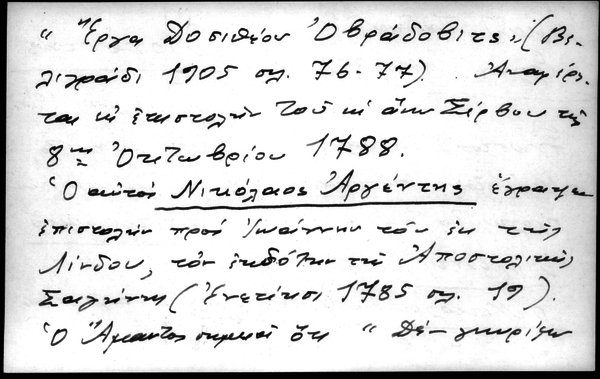 "Ἔργα Δοσιθέου Ὀβράδοβιτς" (Βε-
λιγράδι 1905 σελ. 76-77). Ἀναφέρε-
ται κ' ἐπιστολὴν τοῦ κ' ἄνω Σέρβου τῆς
8ης Ὀκτωβρίου 1788.
Ὁ αὐτὸς Νικόλαος Ἀργέντης ἔγραψεν
ἐπιστολὴν πρὸς Ἰωάννην τὸν ἐκ τῆς
Λίνδου, τὸν ἐκδότην τῆς Ἀποστολικῆς
Σαγήνης (Ἐνετίησι 1785 σελ. 19).
Ὁ Ἄμαντος σημειοῖ ὅτι "Δὲν γνωρίζω